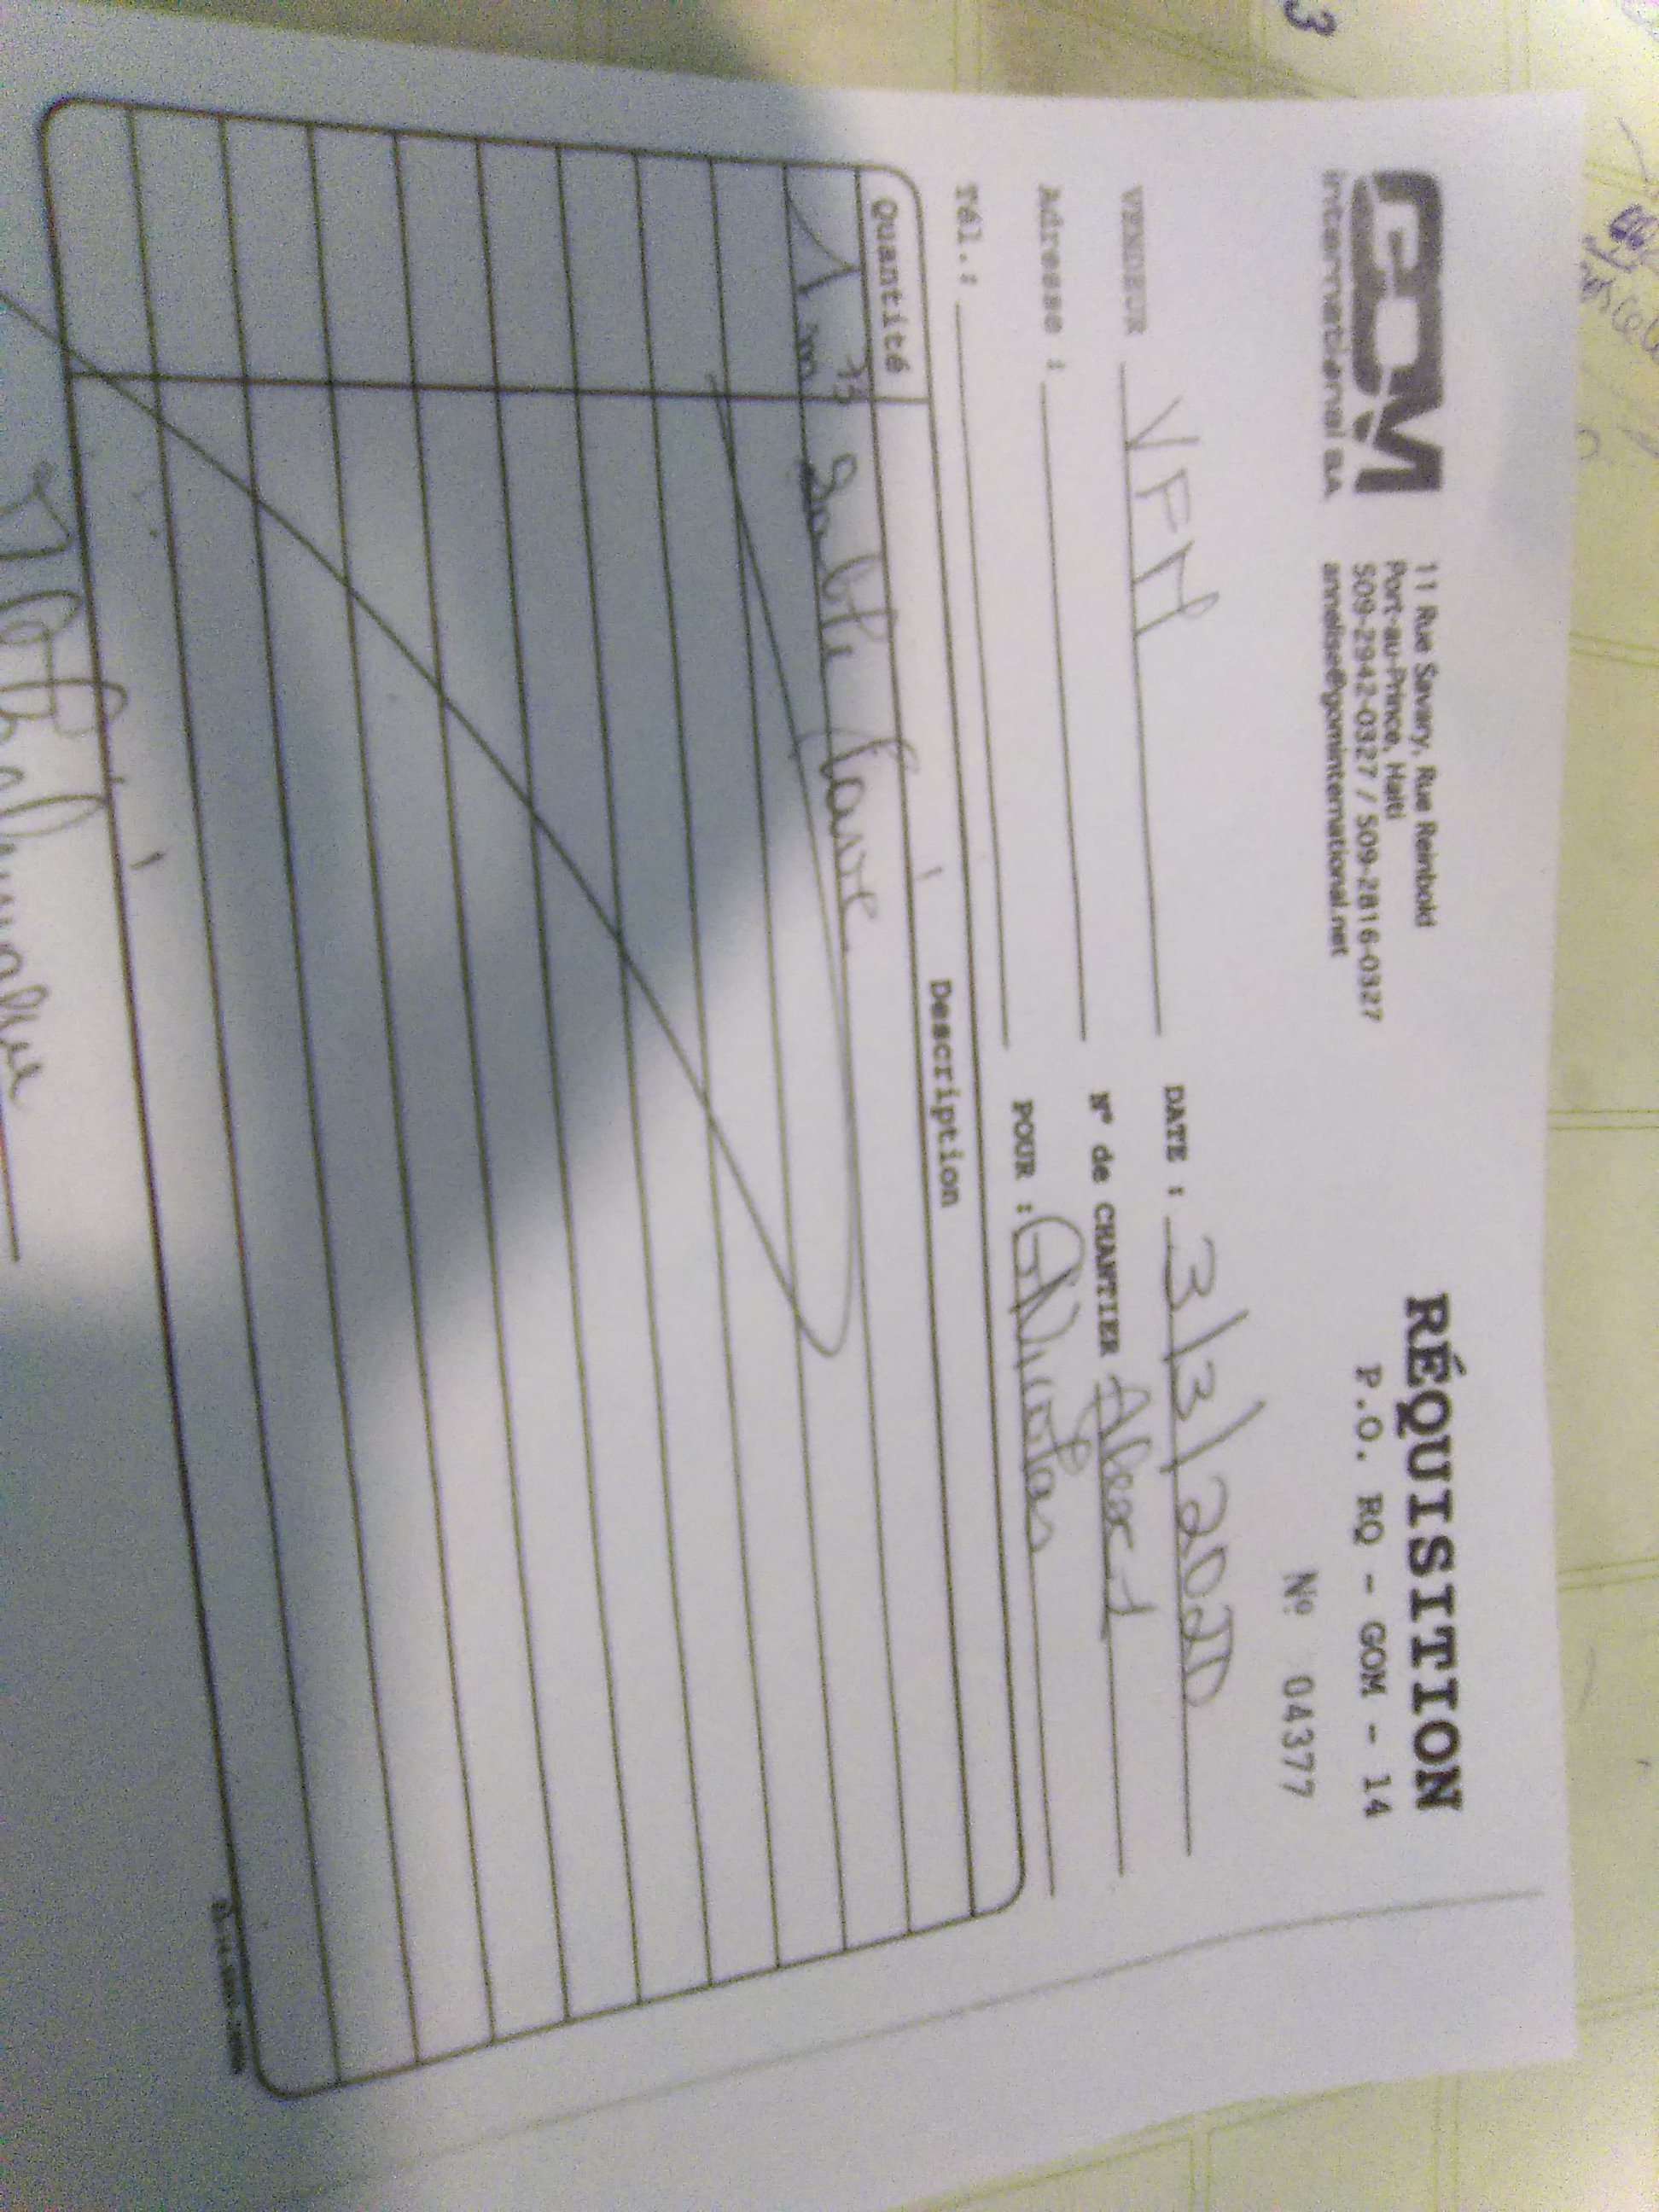 GOM
international s.a.
11 Rue Savary, Rue Reinbold
Port-au-Prince, Haiti
509-2942-0327 / 509-2816-0327
annelise@gominternational.net
RÉQUISITION
P.O. RQ - GOM - 14
Nº 04377
VENDEUR
DATE : 3/3/2020
Adresse :
Nº de CHANTIER
Tél.:
POUR :
Quantité Description
1 m3 Sable
3